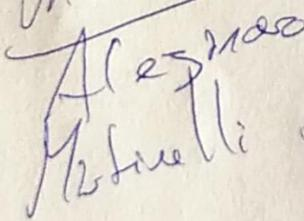 Alessandro
Martinelli